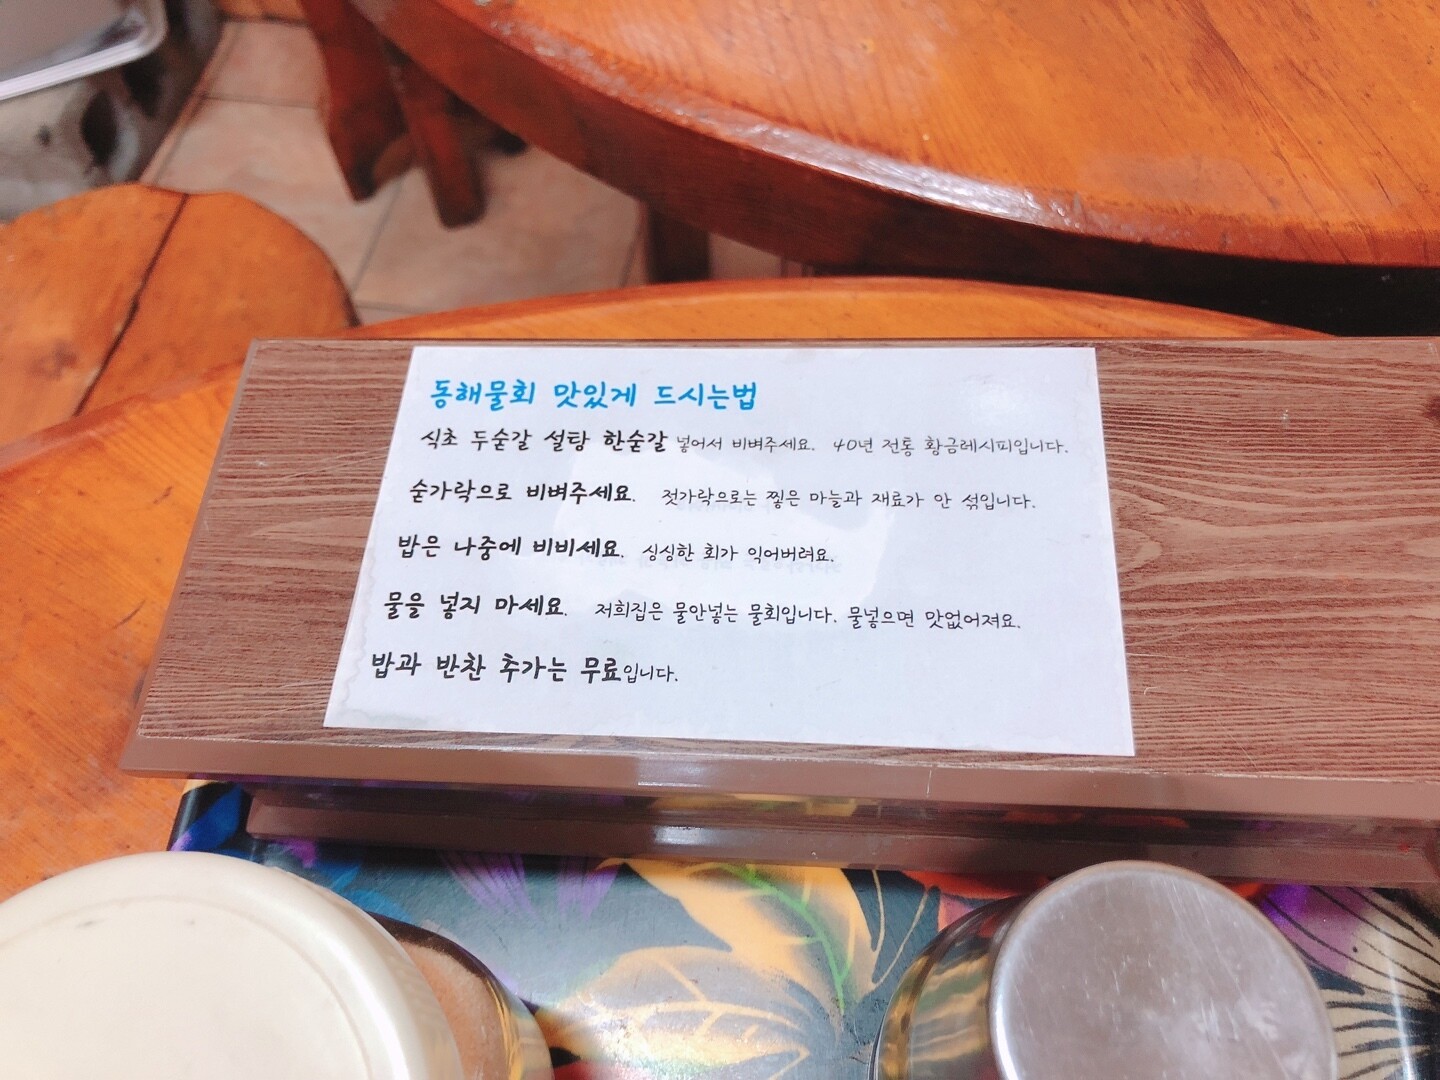 동해물회 맛있게 드시는법
식초 두숟갈 설탕 한숟갈 넣어서 비벼주세요. 40년 전통 황금레시피입니다.
숟가락으로 비벼주세요. 젓가락으로는 찧은 마늘과 재료가 안 섞입니다.
밥은 나중에 비비세요. 싱싱한 회가 익어버려요.
물을 넣지 마세요. 저희집은 물안넣는 물회입니다. 물넣으면 맛없어져요.
밥과 반찬 추가는 무료입니다.